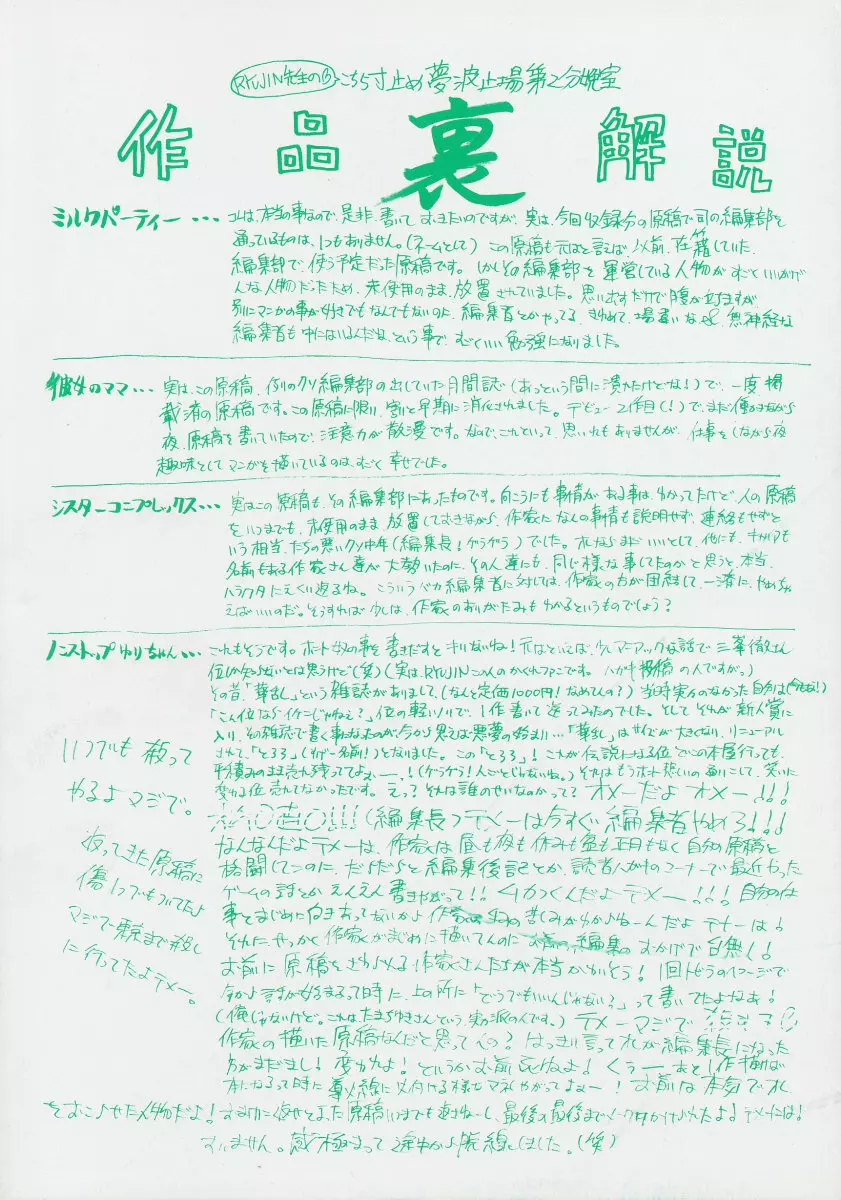 RYUJIN先生の こちら寸止め夢波止場第2分娩室
作品裏解説
ミルクパーティー・・・ コレは、本当の事なので、是非、書いておきたいのですが、実は、今回収録分の原稿で司の編集部を
通っているものは、1つもありません。(ネームとして) この原稿も元はと言えば、以前、在籍していた
編集部で、使う予定だった原稿です。しかしその編集部を運営している人物がすごくいいかげ
んな人物だったため、未使用のまま、放置されていました。思い出すだけで腹が立ちますが
別にマンガの事が好きでもなんでもないのに、編集者とかやってる、きわめて、場違いな 無神経な
編集者も中にはいるんだね、という事で、すごくいい勉強になりました。
彼女のママ・・・ 実は、この原稿、例のクソ編集部の出していた月間誌(あっという間に潰れたけどな!)で、一度掲
載済の原稿です。この原稿に限り、割と早期に消化されました。デビュー2作目(!)で、まだ働きながら
夜、原稿を書いていたので、注意力が散漫です。なので、これといって、思い入れもありませんが、仕事をしながら夜
趣味としてマンガを描いているのは、すごく幸せでした。
シスターコンプレックス・・・ 実はこの原稿も、その編集部にあったものです。向こうにも事情がある事は、わかってたけど、人の原稿
をいつまでも、未使用のまま、放置しておきながら、作家になんの事情も説明せず、連絡もせずと
いう相当、たちの悪いクソ中年(編集長!ゲラゲラ)でした。オレならまだいいとして、他にも、キャリアも
名前もある作家さん達が大勢いたのに、その人達にも、同じ様な事してたのかと思うと、本当、
ハラワタにえくい返るね。こういうバカ編集者に対しては、作家の方が団結して、一斉に、やめちゃ
えばいいのだ。そうすれば少しは、作家のありがたみもわかるというものでしょう?
ノンストップゆりちゃん・・・ これもそうです。ホント奴の事を書きだすとキリないね!元はといえば、少しマニアックな話で三峯徹さん
位しか知らないとは思うけど(笑)(実は、RYUJINこの人のかくれファンです。ハガキ投稿の人ですが。)
その昔「華乱」という雑誌がありまして、(なんと定価1000円!なめてんの?)当時実力のなかった自分は(今もな!)
「こん位ならイケンじゃねえ?」位の軽いノリで、1作書いて送ってみたのでした。そしてそれが新人賞に
入り、その雑誌で書く事になったのが、今から思えば悪夢の始まり…「華乱」はサイズが大きくなり、リニューアル
されて、「とろろ」(すげー名前!)となりました。この「とろろ」!これが伝説になる位どこの本屋行っても、
平積みのまま売れ残っててよぉー、!(ゲラゲラ!人ごとじゃないね。)それはもうホント悲しいの通りこして、笑いに
変わる位売れてなかったです。えっ?それは誰のせいなのかって?オメーだよオメー!!!
!!!(編集長)テメーは今すぐ編集者やめろ!!!
なんなんだよテメーは、作家は昼も夜も休みも盆も正月もなく自分の原稿と
格闘してんのに、だらだらと編集後記とか、読者ハガキのコーナーで最近やった
ゲームの話とかえんえん書きやがって!!ムカつくんだよテメー!!!自分の仕
事とまじめに向きあってないから作家 の苦しみがわからねーんだよテメーは!
それに、せっかく作家がまじめに描いてんのにお前の編集のおかげで台無し!
お前に原稿をさわられる作家さんたちが本当かわいそう!1回トビラの1ページで
今から話が始まるって時に、上の所に「どうでもいいんじゃない?」って書いてたよなあ!
(俺じゃないけど。これは、たまちゆきさんという、実力派の人です。)テメーマジで
作家の描いた原稿なんだと思ってんの?はっきり言ってオレが編集長になった
方がまだまし!変われよ!というかお前死ねよ!くぅー あと1作描けば
本になるって時に 以内ける様なマネしやがってよぉー!お前は本気でオレ
をおこらせた人物だよ!おまけに返せとよた原稿いつまでも返さねーし、最後の最後までメーワクかけられたよ!テメーには!
すいません。感極まって途中から脱線しました。(笑)
いつでも殺って
やるよマジで。
返ってきた原稿に
傷1つでもついてたら
マジで東京まで殺し
に行ってたよテメー。